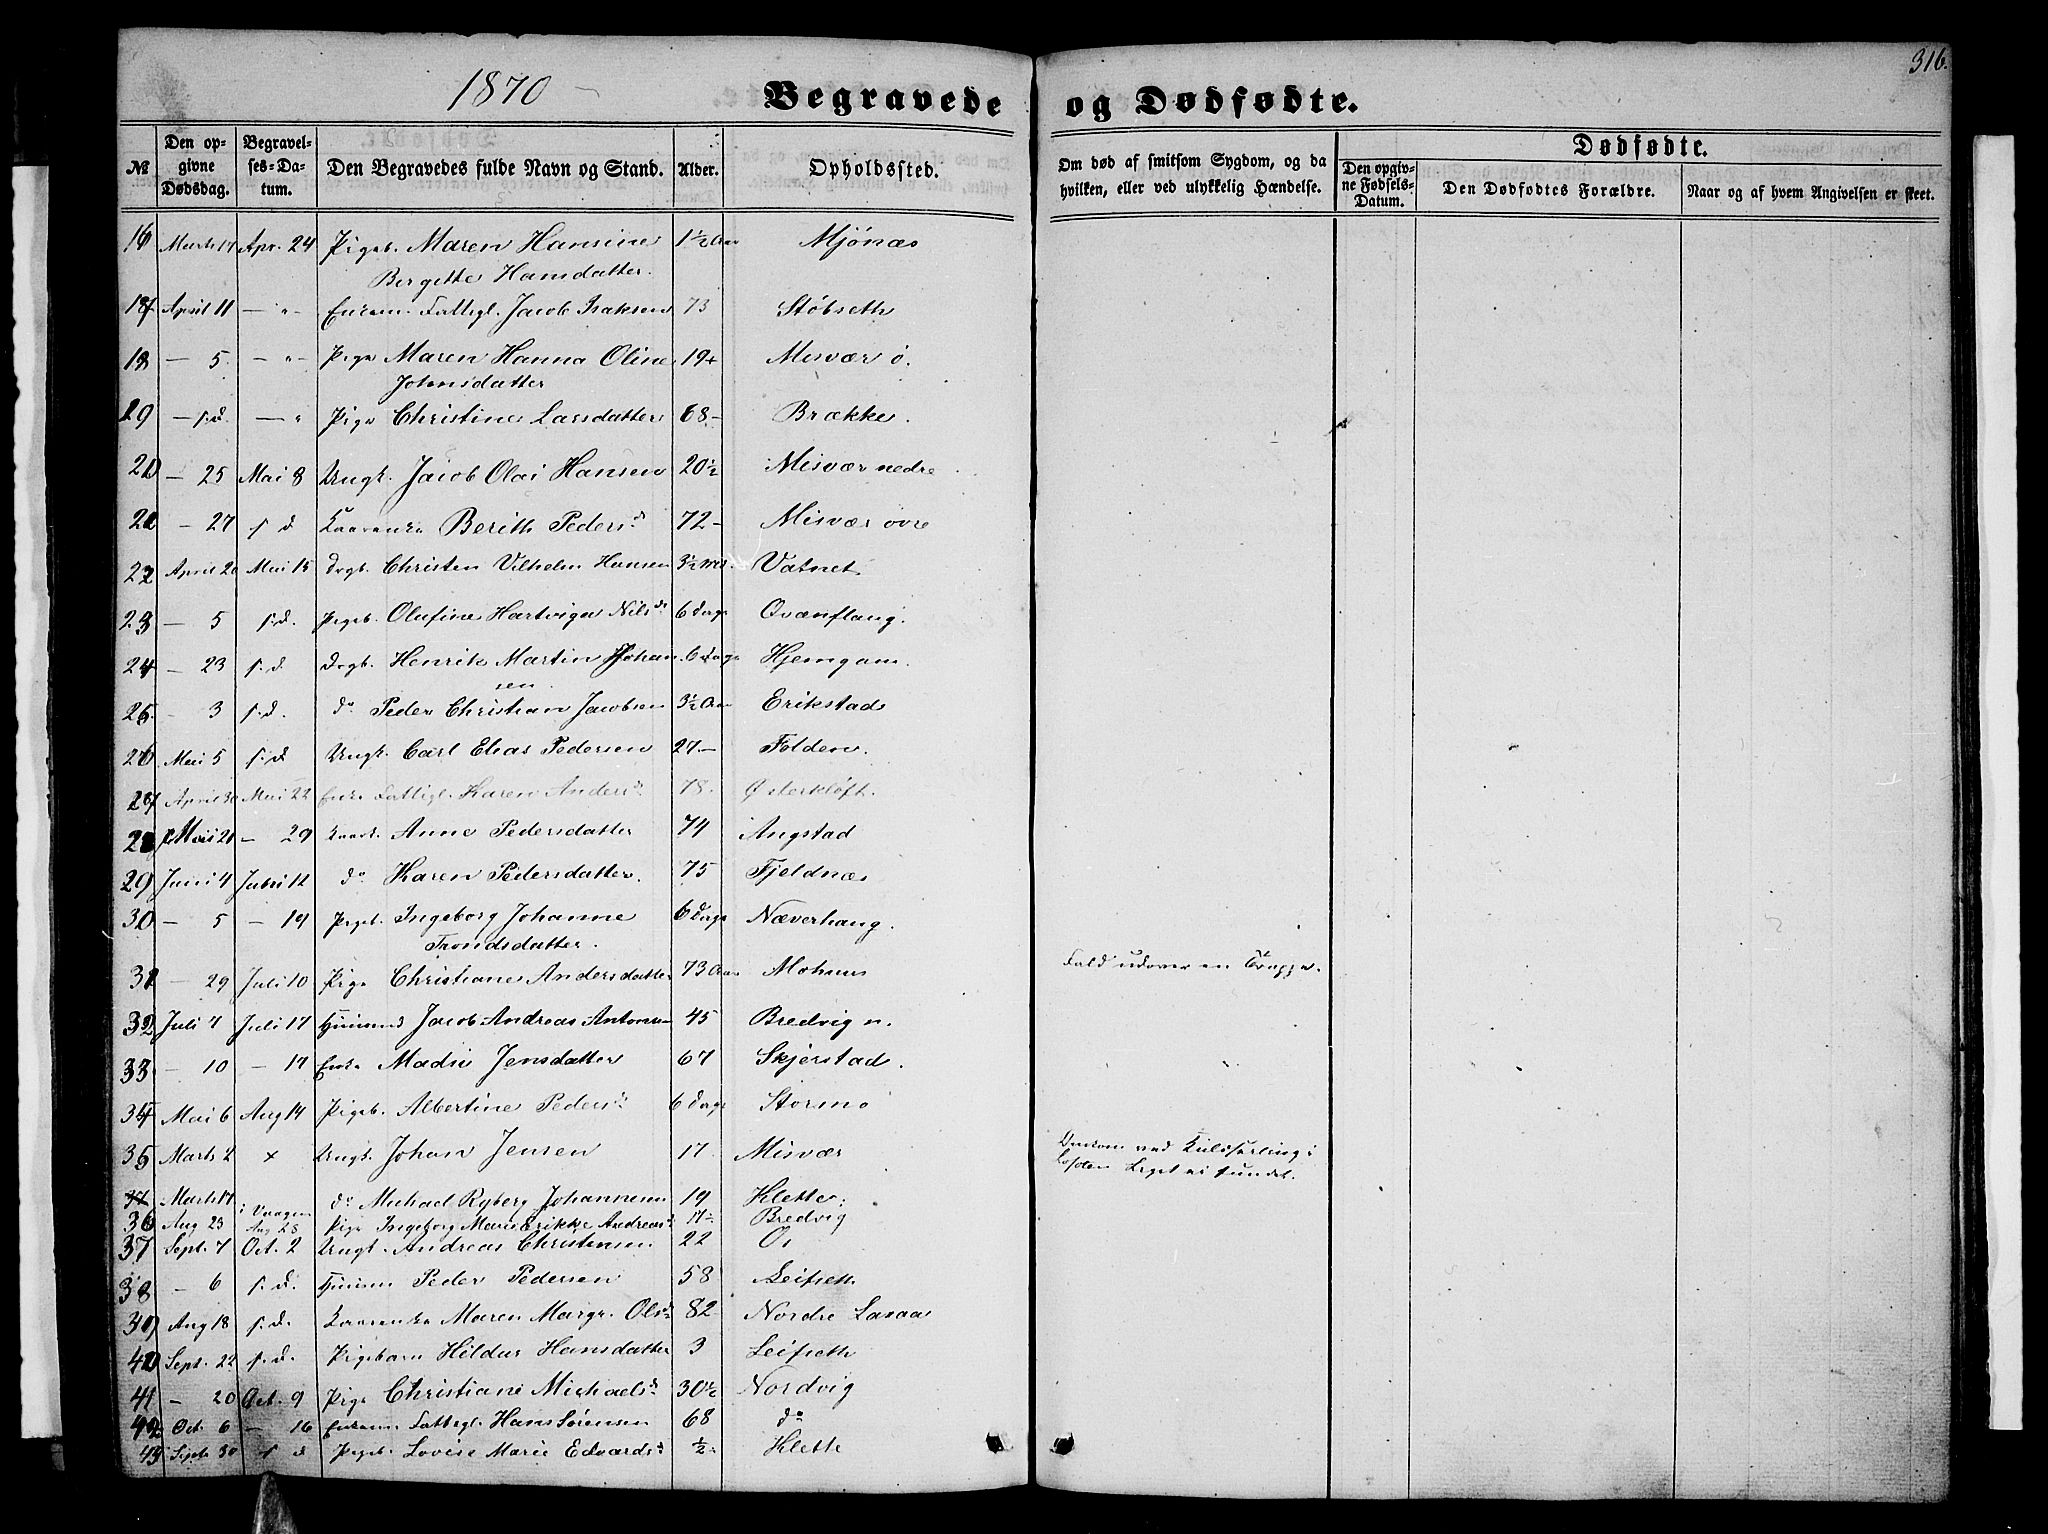 316.
1870
Begravede og Dødfødte.
№ Den opgivne Dødsdag. Begravelses-Datum. Den Begravedes fulde Navn og Stand. Alder. Opholdssted. Om død af smitsom Sygdom, og da hvilken, eller ved ulykkelig Hændelse. Dødfødte. Den opgivne Fødsels-Datum. Den Dødfødtes Forældre. Naar og af hvem Angivelsen er skeet.
16 Marts 17 Apr. 24 Pigeb. Maren Hansine 1½ Aar Mjónæs
Bergette Hansdatter.
17 April 11 — " — Enkem. Fattigl. Jacob Isaksen 73 Stöbseth
18 — 5. — " — Pige Maren Hanna Oline 19 Misvær ö.
Johnsdatter
19 — s.d. — " Pige Christine Larsdatter 68 — Brække.
20 — 25 Mai 8 Ungk. Jacob Olai Hansen 20½ Misvær nedre
21 — 27 s d Kaarenke Berith Peders d. 72 — Misvær övre
22 April 20 Mai 15 Drgb. Christen Vilhelm Hansen 3½ Vatnet
23 — 5 s.d. Pigeb. Olufine Hartviga Nilsd. 6 Dage Qvænflaug.
24 — 23 s.d. Drgb. Henrik Martin Johan 6 Dage Hjemgam.
sen
25 — 3 s.d. do Peder Christian Jacobsen 3½ Aar Erikstad
26 Mai 5 s.d Ungk. Carl Elias Pedersen 27. — Folden.
27 April 30 Mai 22 Enke Fattigl. Karen Andersd. 78. Österklöft.
28 Mai 21 — 29 Kaark. Anne Pedersdatter 74 Angstad
29 Juni 4 Juni 12 do Karen Pedersdatter. 75 Fjeldnæs
30 — 5 — 19 Pigeb. Ingeborg Johanne 6 Dage Næverhaug.
Trondsdatter.
31 — 29 Juli 10 Pige Christiane Andersdatter 73 Aar Mohus Fald udover en Trappe.
32 Juli 7 Juli 17 Huusmd Jacob Andreas Antonsen 45 Bredvig n.
33 — 10 — 17 Enke Madsi Jensdatter 67 Skjerstad.
34 Mai 6 Aug 14 Pigeb. Albertine Pedersd. 6 Dage Stormo
35 Marts 2 x Ungk. Johan Jensen 17 Misvær Omkom ved Kuldseiling i
Lofoten Liget ei fundet.
Marts 17 i Vaagen do Michael Ryberg Johannesen 19 Klette.
36 Aug 23 Aug 28 Pige Ingeborg Marie Erikke Andreasd. Bredvig
37 Sept. 7 Oct. 2 Ungk. Andreas Christensen 22 Os
38 — 6 s.d. Huusm Peder Pedersen 58 Leifseth
39 Aug 18 s.d. Kaarenke Maren Margr. Olsd. 82 Nordre Laxaa
40 Sept. 22 s.d. Pigebarn Hildur Hansdatter 3 Leifseth
41 — 20 Oct. 9 Pige Christiane Michaelsd. 30½ Nordvig
42 Oct. 6 — 16 Enkem Fattigl. Hans Sörensen 68 do
43 Septb 30 s d Pigeb. Lovise Marie Edvardsd. ½ Klette